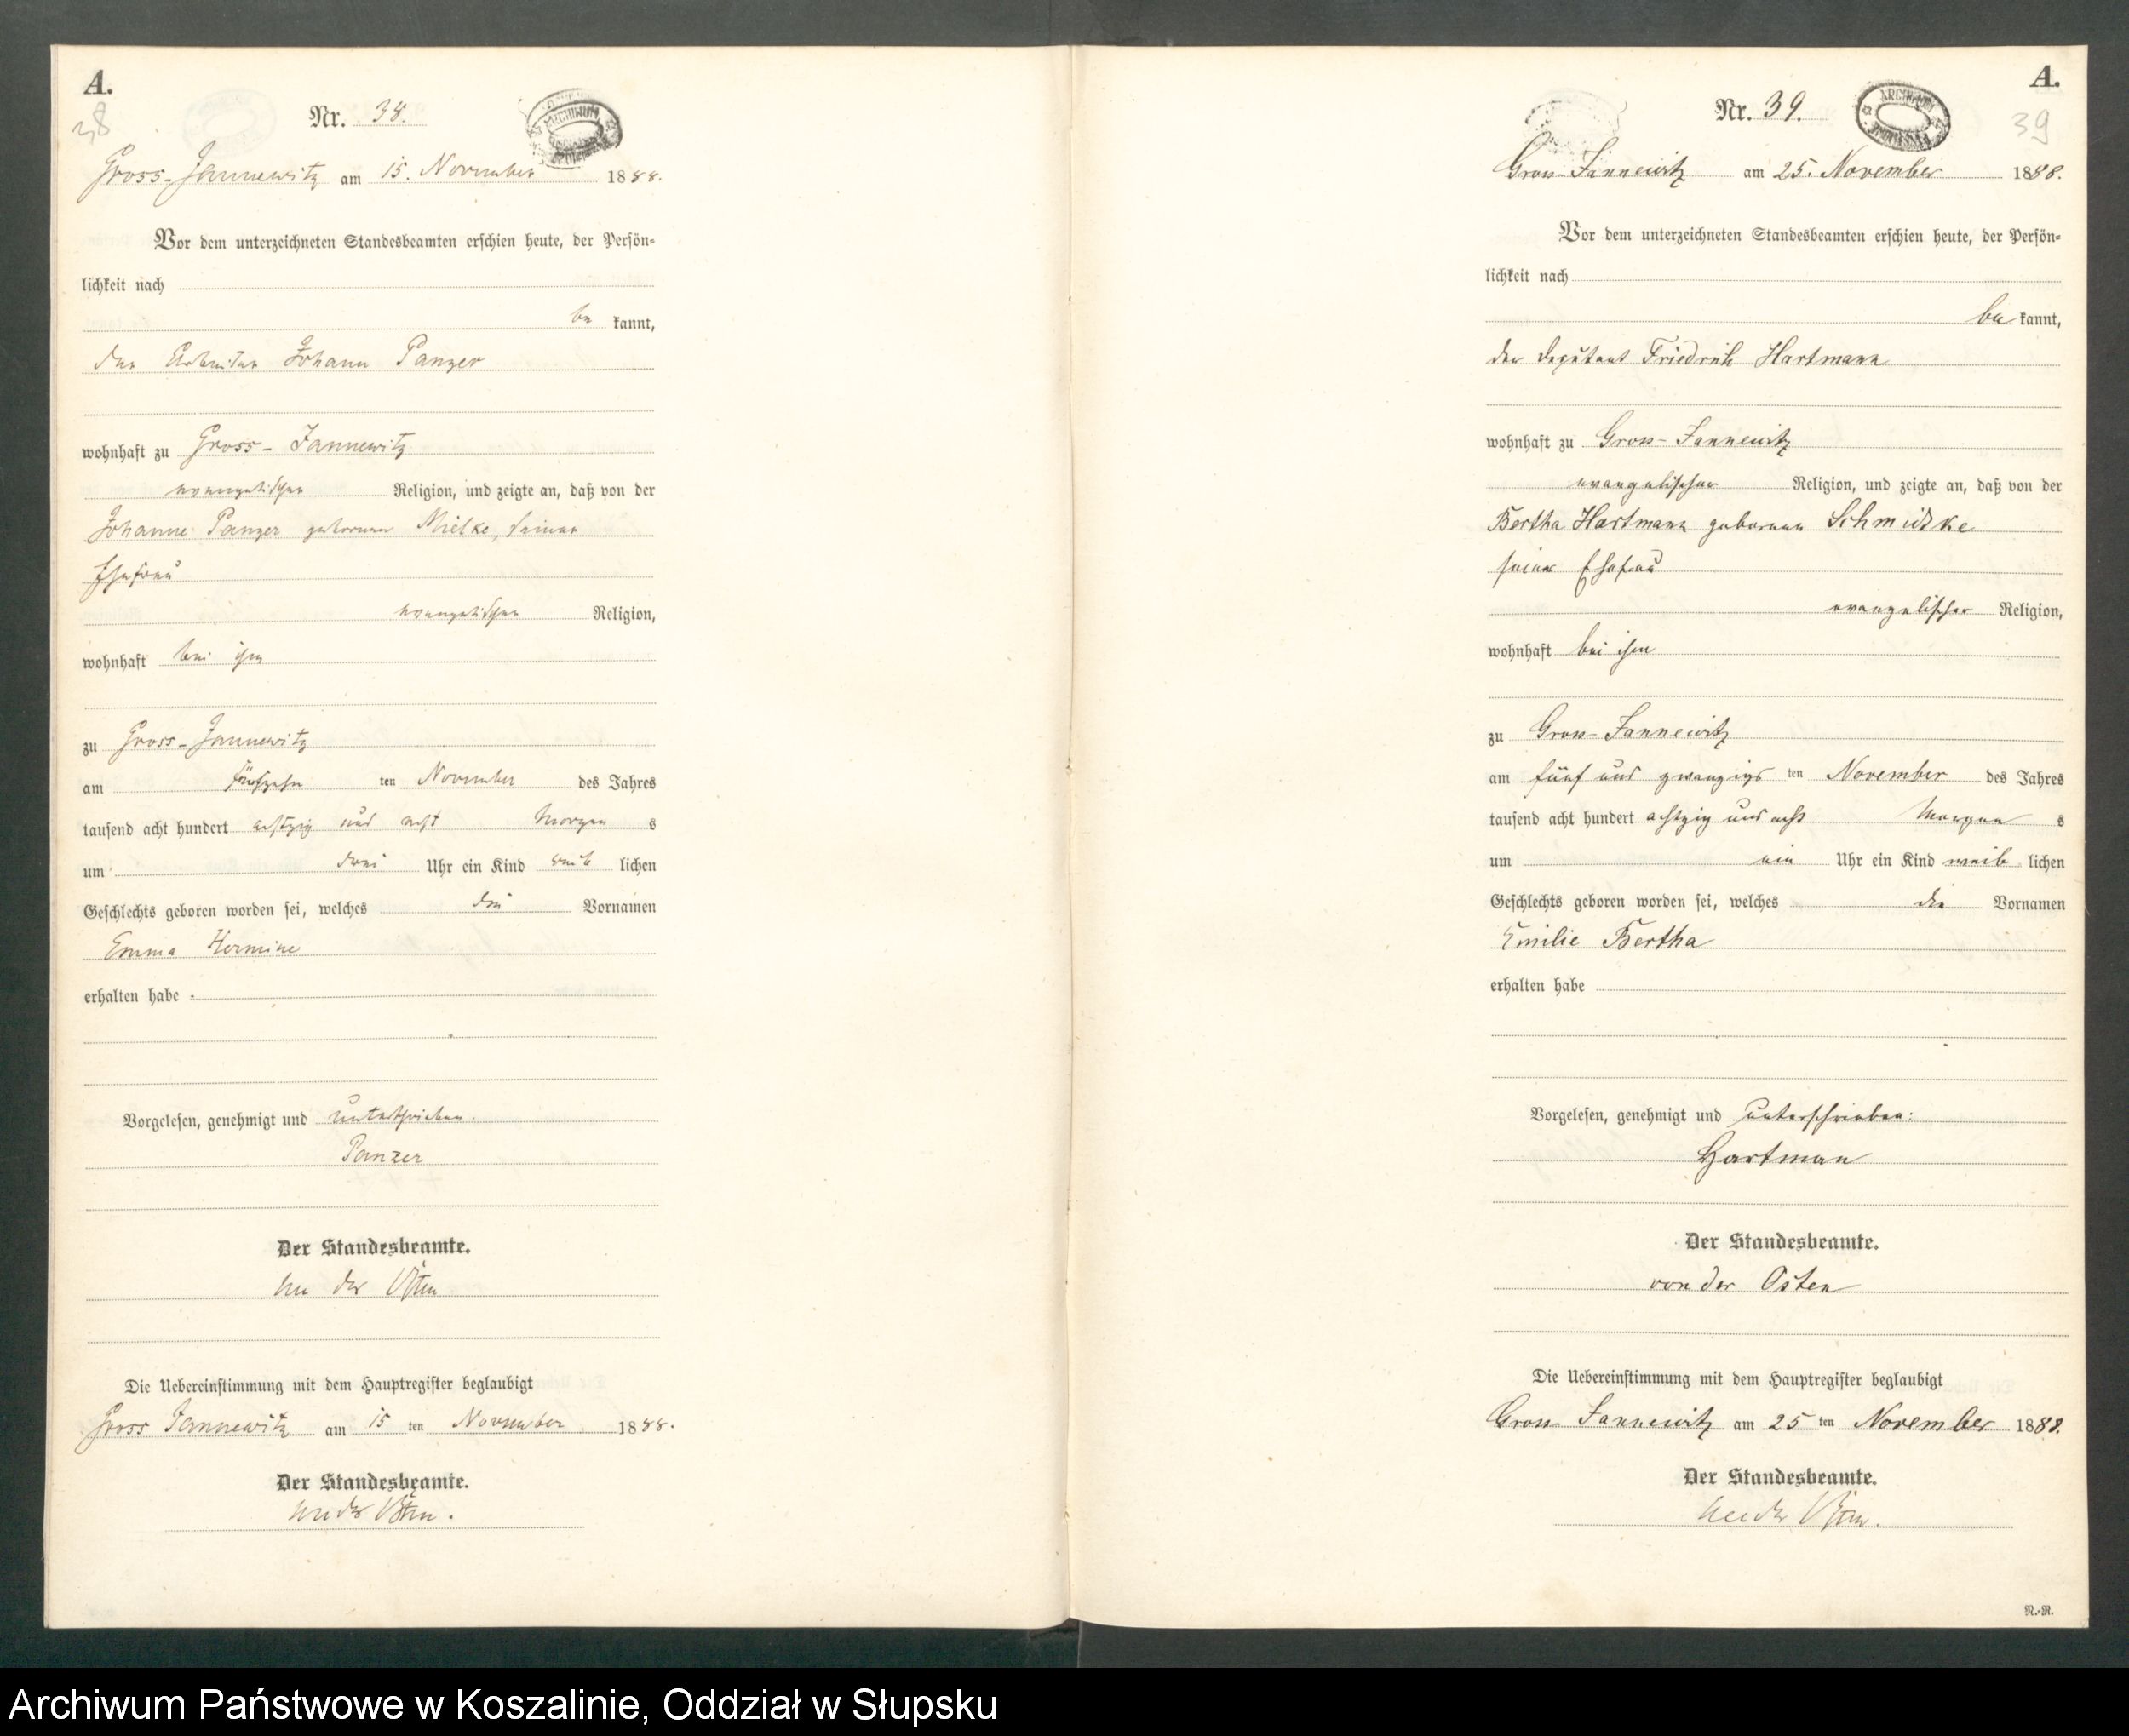 A.
38
Nr. 38.
ARCHIWUM
Gross-Jannewitz am 15. November 1888.
Vor dem unterzeichneten Standesbeamten erschien heute, der Persön-
lichkeit nach
be kannt,
der Arbeiter Johann Panzer
wohnhaft zu Gross-Jannewitz
evangelischer Religion, und zeigte an, daß von der
Johanne Panzer geborenen Mielke, seiner
Ehefrau
evangelischer Religion,
wohnhaft bei ihm
zu Gross-Jannewitz
am fünfzehn ten November des Jahres
tausend acht hundert achtzig und acht Morgen s
um drei Uhr ein Kind weib lichen
Geschlechts geboren worden sei, welches die Vornamen
Emma Hermine
erhalten habe.
Vorgelesen, genehmigt und unterschrieben.
Panzer
Der Standesbeamte.
von der Osten
Die Uebereinstimmung mit dem Hauptregister beglaubigt
Gross Jannewitz am 15 ten November 1888.
Der Standesbeamte.
von der Osten.
A.
39
Nr. 39.
ARCHIWUM
Gross-Jannewitz am 25. November 1888.
Vor dem unterzeichneten Standesbeamten erschien heute, der Persön-
lichkeit nach
be kannt,
der Deputant Friedrich Hartmann
wohnhaft zu Gross-Jannewitz
evangelischer Religion, und zeigte an, daß von der
Bertha Hartmann geborenen Schmidtke
seiner Ehefrau
evangelischer Religion,
wohnhaft bei ihm
zu Gross-Jannewitz
am fünf und zwanzigs ten November des Jahres
tausend acht hundert achtzig und acht Morgen s
um ein Uhr ein Kind weib lichen
Geschlechts geboren worden sei, welches die Vornamen
Emilie Bertha
erhalten habe
Vorgelesen, genehmigt und unterschrieben:
Hartman
Der Standesbeamte.
von der Osten
Die Uebereinstimmung mit dem Hauptregister beglaubigt
Gross Jannewitz am 25 ten November 1888.
Der Standesbeamte.
von der Osten.
N.-N.
Archiwum Państwowe w Koszalinie, Oddział w Słupsku